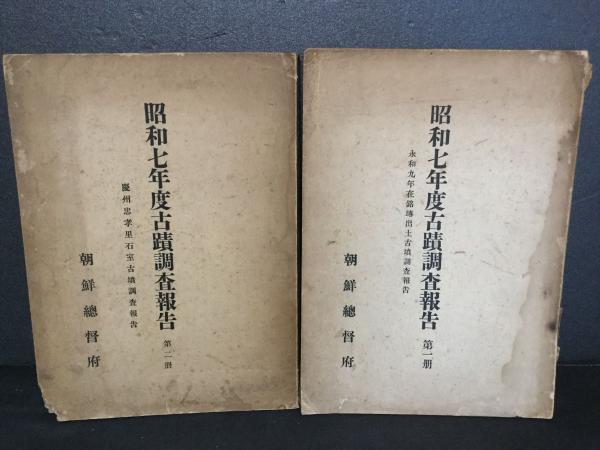 昭和七年度古蹟調査報告 第一册
永和九年在銘塼出土古墳調査報告
朝鮮總督府
昭和七年度古蹟調査報告 第二册
慶州忠孝里石室古墳調査報告
朝鮮總督府